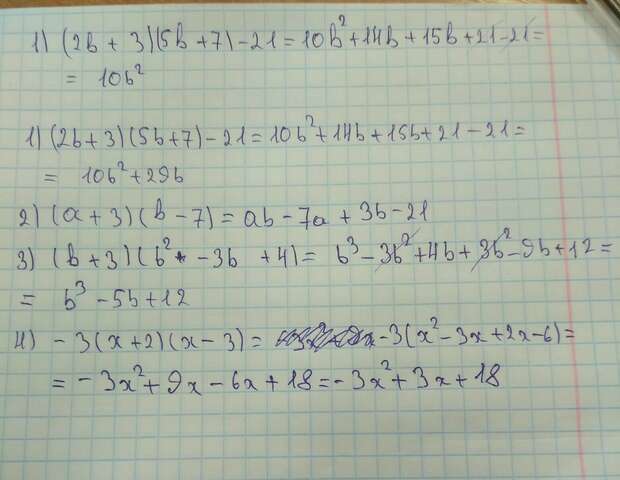 1) (2b + 3)(5b + 7) - 21 = 10b² + 14b + 15b + 21 - 21 =
= 10b²
1) (2b + 3)(5b + 7) - 21 = 10b² + 14b + 15b + 21 - 21 =
= 10b² + 29b
2) (a + 3)(b - 7) = ab - 7a + 3b - 21
3) (b + 3)(b² - 3b + 4) = b³ - 3b² + 4b + 3b² - 9b + 12 =
= b³ - 5b + 12
4) - 3(x + 2)(x - 3) = -3(x² - 3x + 2x - 6) =
= - 3x² + 9x - 6x + 18 = - 3x² + 3x + 18